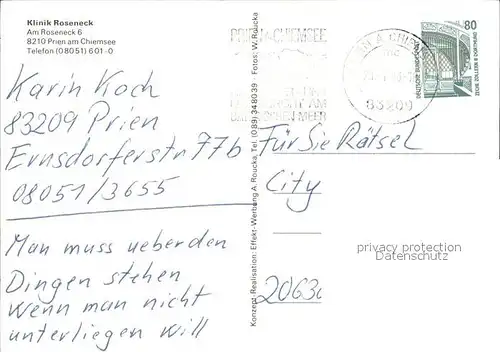 Klinik Roseneck
Am Roseneck 6
8210 Prien am Chiemsee
Telefon (08051) 601-0
Karin Koch
83209 Prien
Ernsdorferstr 77b
08051/3655
Man muss ueber den
Dingen stehen
wenn man nicht
unterliegen will
Konzept Realisation: Effekt-Werbung A. Roucka, Tel. (089) 348039 Fotos: W. Roucka
PRIEN A. CHIEMSEE
AM
MEER
83209
80
DEUTSCHE BUNDESPOST
ZECHE ZOLLERN II DORTMUND
Für Sie Rätsel
City
privacy protection
Datenschutz